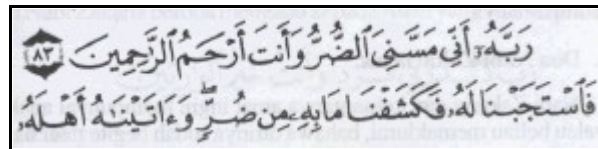 رَبَّهُۥٓ أَنِّى مَسَّنِىَ ٱلضُّرُّ وَأَنتَ أَرْحَمُ ٱلرَّٰحِمِينَ ﴿٨٣﴾
فَٱسْتَجَبْنَا لَهُۥ فَكَشَفْنَا مَا بِهِۦ مِن ضُرٍّۖ وَءَاتَيْنَٰهُ أَهْلَهُۥ